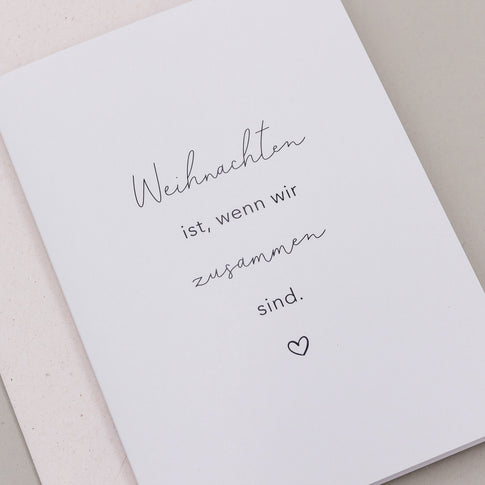 Weihnachten
ist, wenn wir
zusammen
sind.